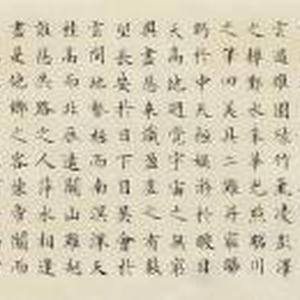 雲遏睢園綠竹氣凌彭澤
之樽鄴水朱華光照臨川
之筆四美具二難并窮睇
眄於中天極娛遊於暇日
天高地迥覺宇宙之無窮
興盡悲來識盈虛之有數
望長安於日下目吳會於
雲間地勢極而南溟深天
柱高而北辰遠關山難越
誰悲失路之人萍水相逢
盡是他鄉之客懷帝閽而